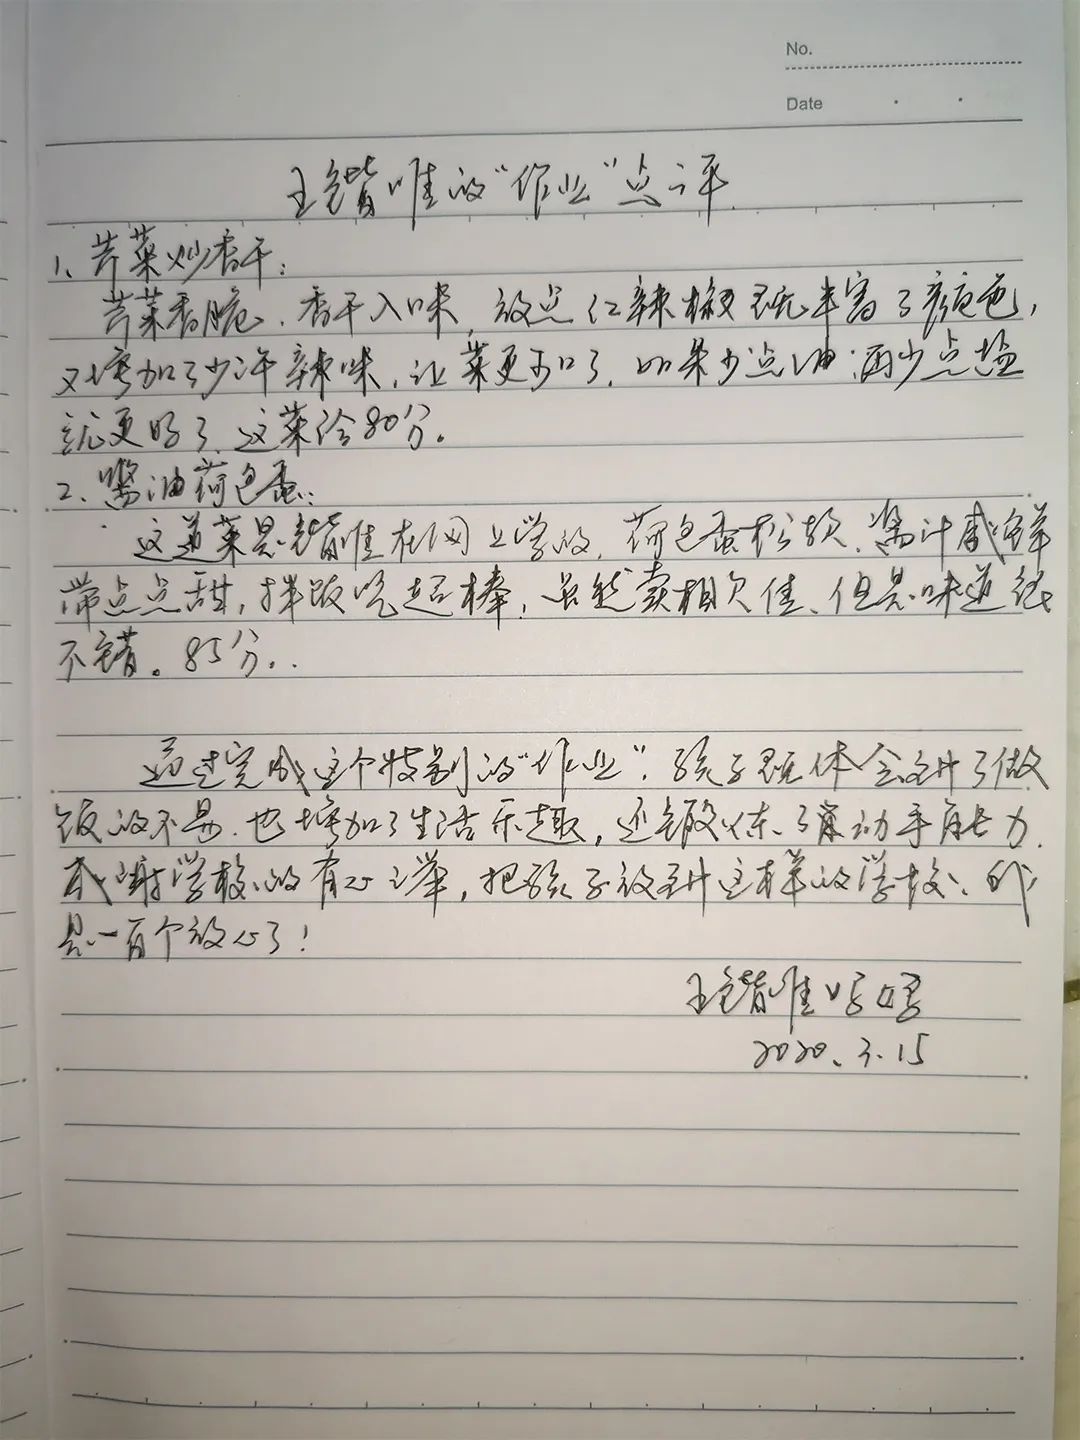 No.
Date
王锴唯的“作业”点评
1、芹菜炒香干：
芹菜香脆、香干入味，放点红辣椒既丰富了颜色，
又增加了少许辣味，让菜更可口了，如果少点油，再少点盐
就更好了，这菜给80分。
2、酱油荷包蛋：
这道菜是锴唯在网上学的，荷包蛋松软，酱汁咸鲜
带点点甜，拌饭吃超棒，虽然卖相欠佳、但是味道很
不错。85分。
通过完成这个特别的“作业”，孩子既体会到了做
饭的不易，也增加了生活乐趣，还锻炼了动手能力，
感谢学校的有心之举，把孩子放到这样的学校、我
是一百个放心了！
王锴唯妈妈
2020.3.15